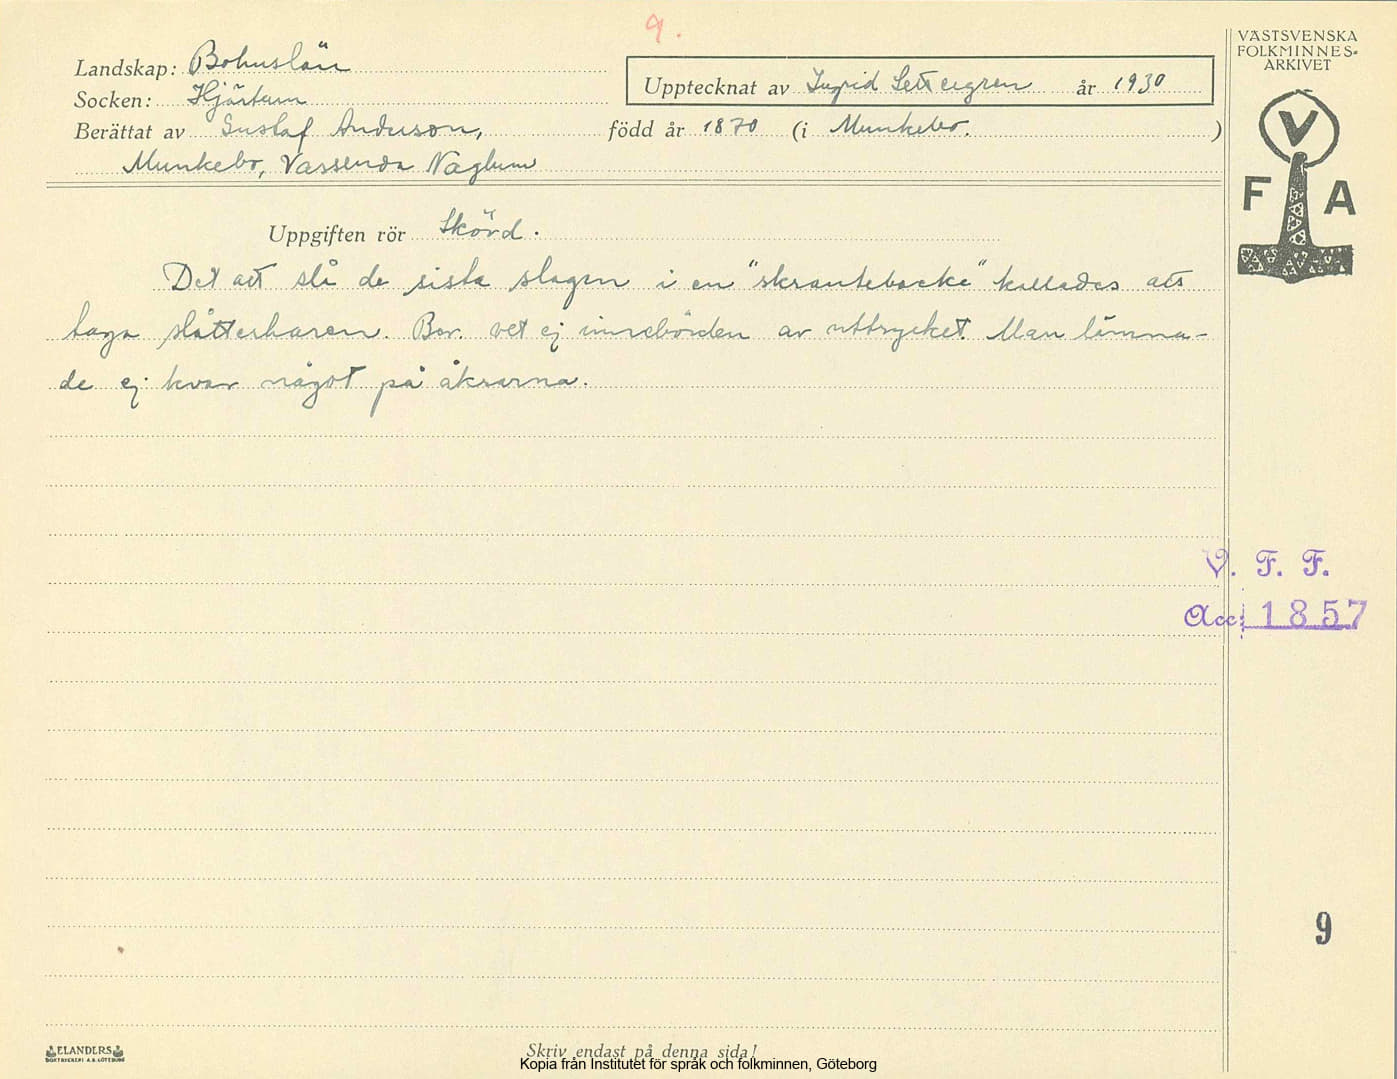 9.
VÄSTSVENSKA
FOLKMINNES-
ARKIVET
Landskap: Bohuslän
Upptecknat av Ingrid Settergren år 1930
Socken: Hjärtum
Berättat av Gustaf Anderson, född år 1870 (i Munkebo. )
Munkebo, Vassenda Naglum
V
F A
Uppgiften rör Skörd.
Det att slå de sista slagen i en "skrantebacke" kallades att
taga slåtterharen. Ber. vet ej innebörden av uttrycket. Man lämna-
de ej kvar något på åkrarna.
V. F. F.
Acc: 1857
9
ELANDERS
BOKTRYCKERI A.B. GÖTEBORG
Skriv endast på denna sida!
Kopia från Institutet för språk och folkminnen, Göteborg